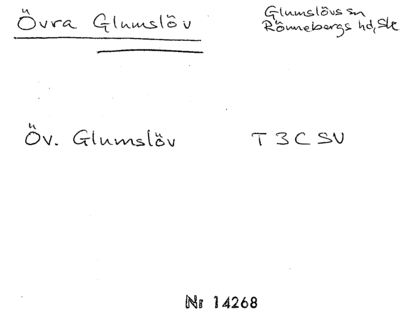 Övra Glumslöv
Glumslövs sn
Rönnebergs hd, Sk
Öv. Glumslöv T 3 C SV
Nr 14268